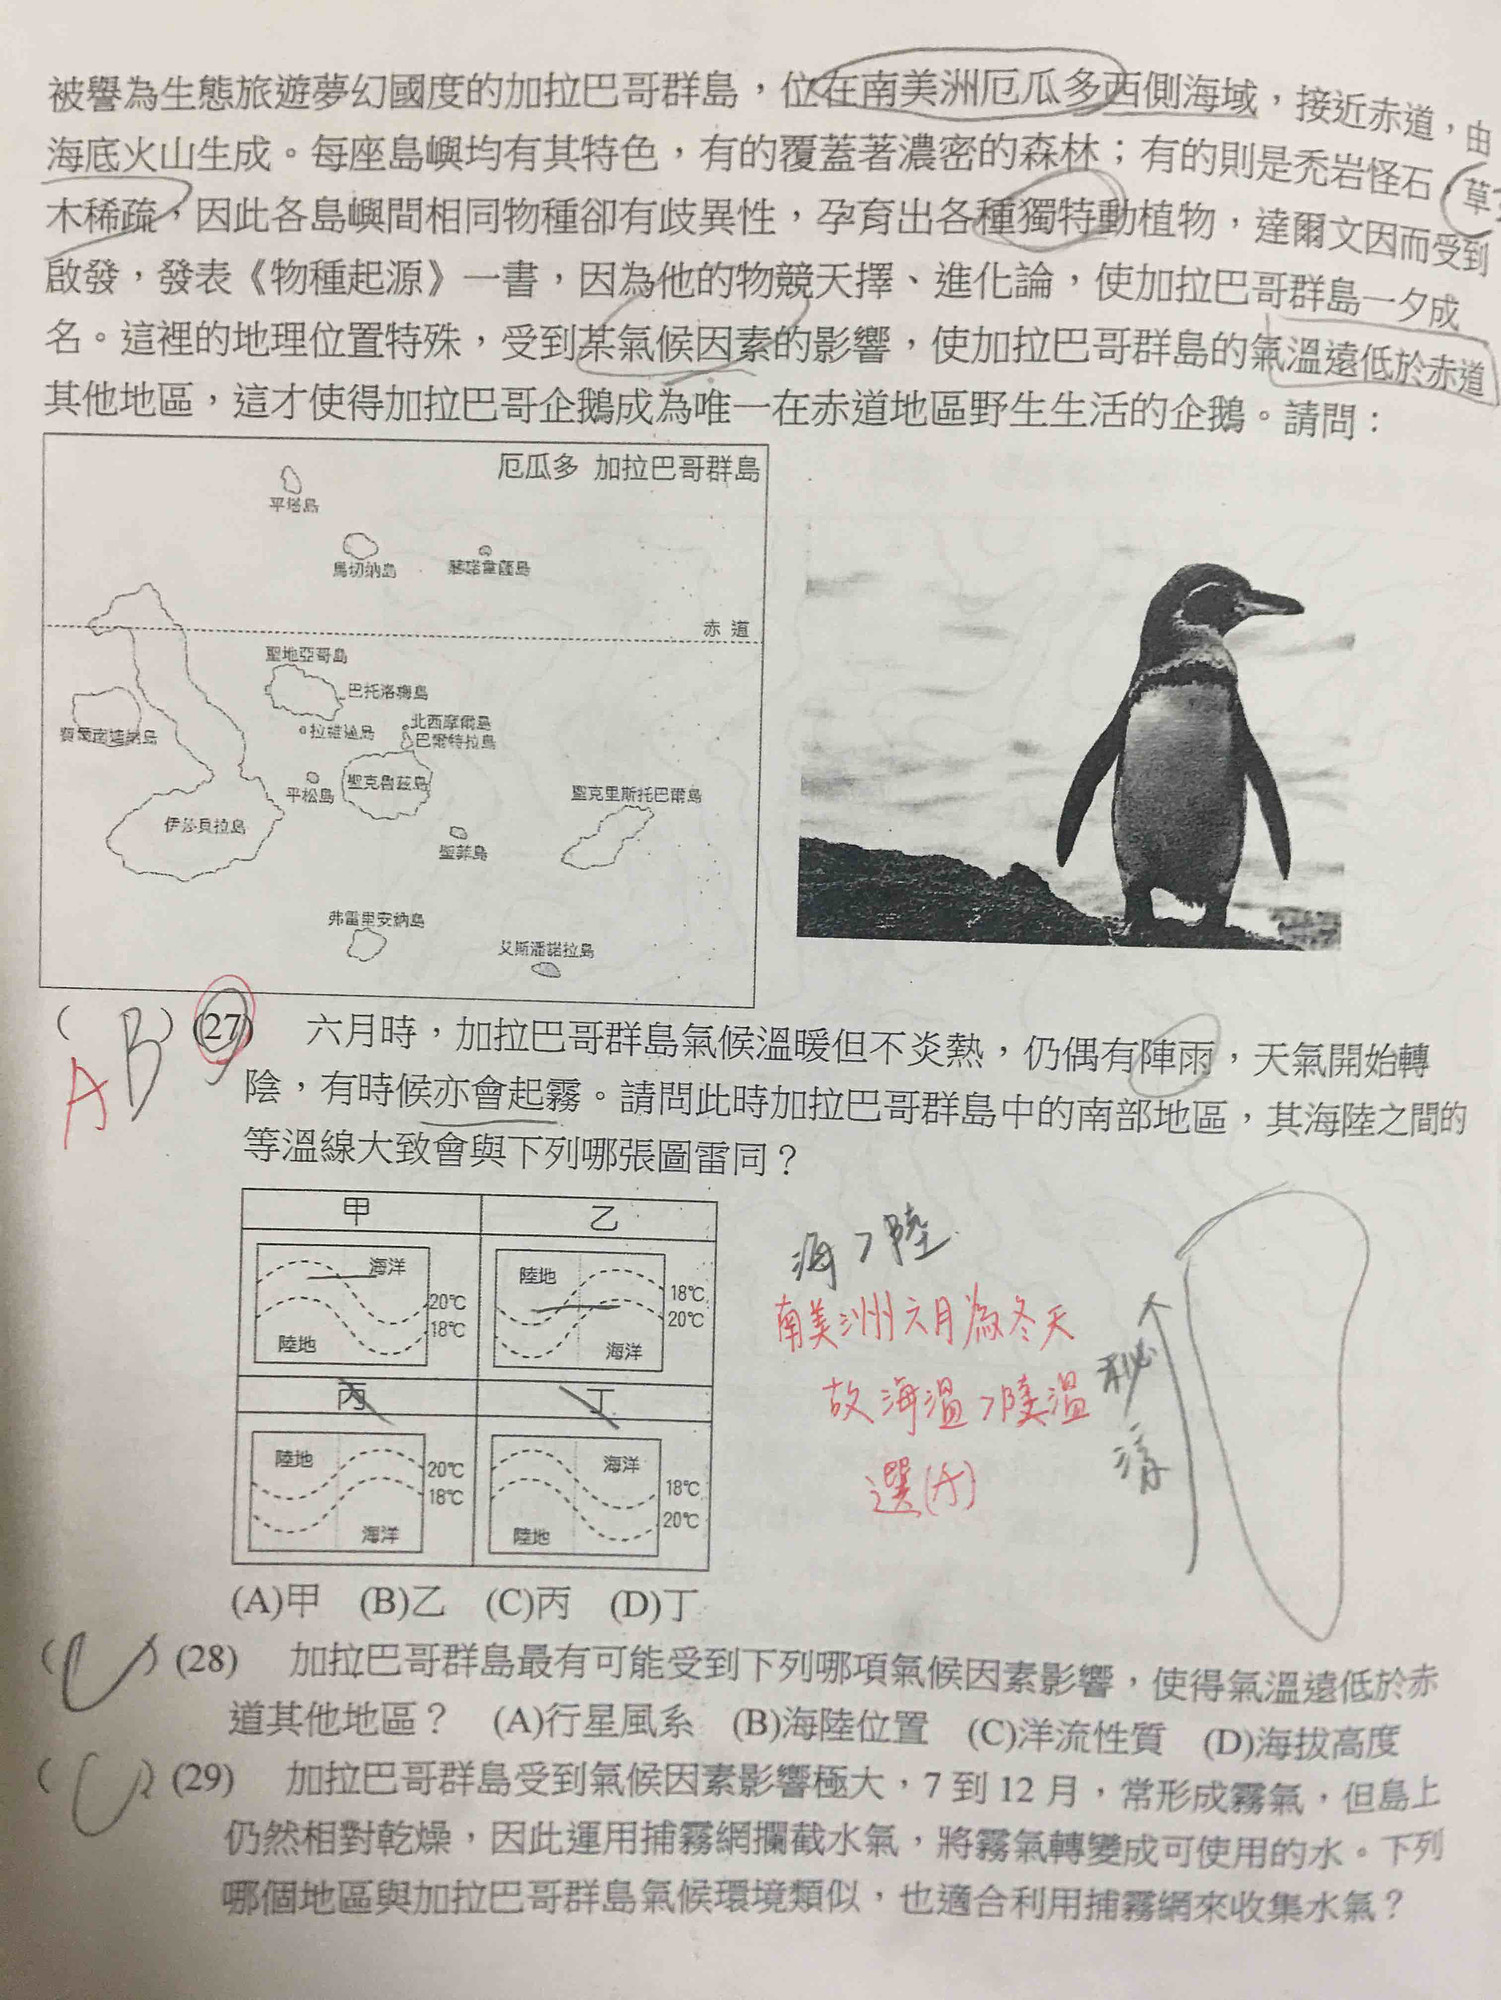 被譽為生態旅遊夢幻國度的加拉巴哥群島，位在南美洲厄瓜多西側海域，接近赤道，由
海底火山生成。每座島嶼均有其特色，有的覆蓋著濃密的森林；有的則是禿岩怪石，草
木稀疏，因此各島嶼間相同物種卻有歧異性，孕育出各種獨特動植物，達爾文因而受到
啟發，發表《物種起源》一書，因為他的物競天擇、進化論，使加拉巴哥群島一夕成
名。這裡的地理位置特殊，受到某氣候因素的影響，使加拉巴哥群島的氣溫遠低於赤道
其他地區，這才使得加拉巴哥企鵝成為唯一在赤道地區野生生活的企鵝。請問：
厄瓜多 加拉巴哥群島
平塔島
馬切納島
赫諾韋薩島
赤道
聖地亞哥島
巴托洛梅島
北西摩爾島
拉維達島
巴爾特拉島
費爾南迪納島
聖克魯茲島
平松島
聖克里斯托巴爾島
伊莎貝拉島
聖菲島
弗雷里安納島
艾斯潘諾拉島
( B ) (27) 六月時，加拉巴哥群島氣候溫暖但不炎熱，仍偶有陣雨，天氣開始轉
A
陰，有時候亦會起霧。請問此時加拉巴哥群島中的南部地區，其海陸之間的
等溫線大致會與下列哪張圖雷同？
甲 乙
海洋 20℃ 18℃ 陸地
陸地 18℃ 20℃ 海洋
丙 丁
陸地 20℃ 18℃ 海洋
海洋 18℃ 20℃ 陸地
海>陸
南美洲六月為冬天
故海溫>陸溫
選(A)
秘
涼
(A)甲 (B)乙 (C)丙 (D)丁
( C ) (28) 加拉巴哥群島最有可能受到下列哪項氣候因素影響，使得氣溫遠低於赤
道其他地區？ (A)行星風系 (B)海陸位置 (C)洋流性質 (D)海拔高度
( C ) (29) 加拉巴哥群島受到氣候因素影響極大，7 到 12 月，常形成霧氣，但島上
仍然相對乾燥，因此運用捕霧網攔截水氣，將霧氣轉變成可使用的水。下列
哪個地區與加拉巴哥群島氣候環境類似，也適合利用捕霧網來收集水氣？